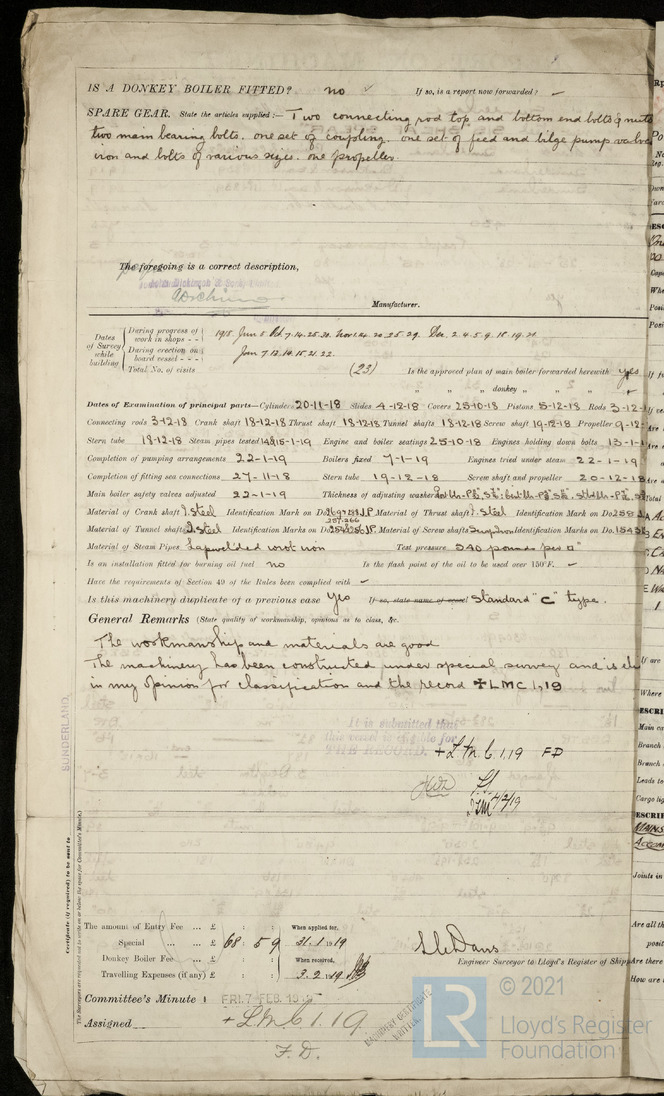 IS A DONKEY BOILER FITTED? no ✓ If so, is a report now forwarded? –
SPARE GEAR. State the articles supplied:— Two connecting rod top and bottom end bolts & nuts
two main bearing bolts. one set of coupling. one set of feed and bilge pump valves
iron and bolts of various sizes. one propeller.
The foregoing is a correct description,
Manufacturer.
Dates of Survey while building
During progress of work in shops - - 1918. Jun 5 Oct. 7. 14. 25. 30. Nov 1. 14. 20. 25. 29. Dec. 2. 4. 5. 9. 18. 19. 21.
During erection on board vessel - - - Jan 7. 13. 14. 15. 21. 22.
Total No. of visits (23) Is the approved plan of main boiler forwarded herewith yes
" " " donkey "
Dates of Examination of principal parts—Cylinders 20-11-18 Slides 4-12-18 Covers 25-10-18 Pistons 5-12-18 Rods 3-12-
Connecting rods 3-12-18 Crank shaft 18-12-18 Thrust shaft 18-12-18 Tunnel shafts 18-12-18 Screw shaft 19-12-18 Propeller 9-12-
Stern tube 18-12-18 Steam pipes tested 15-1-19 Engine and boiler seatings 25-10-18 Engines holding down bolts 13-1-
Completion of pumping arrangements 22-1-19 Boilers fixed 7-1-19 Engines tried under steam 22-1-19
Completion of fitting sea connections 27-11-18 Stern tube 19-12-18 Screw shaft and propeller 20-12-18
Main boiler safety valves adjusted 22-1-19 Thickness of adjusting washers
Material of Crank shaft I. Steel Identification Mark on Do. Material of Thrust shaft I. Steel Identification Mark on Do.
Material of Tunnel shafts I. Steel Identification Marks on Do. Material of Screw shafts Scrap Iron Identification Marks on Do.
Material of Steam Pipes Lapwelded wrot iron Test pressure 540 pounds per □"
Is an installation fitted for burning oil fuel no Is the flash point of the oil to be used over 150°F. –
Have the requirements of Section 49 of the Rules been complied with –
Is this machinery duplicate of a previous case Yes If so, state name of vessel Standard "C" type.
General Remarks (State quality of workmanship, opinions as to class, &c.
The workmanship and materials are good
The machinery has been constructed under special survey and is
in my opinion for classification and the record ✠ LMC 1,19
SUNDERLAND
It is submitted that
this vessel is eligible for
THE RECORD. + L.M.C. 1.19 FD
4/2/19
Certificate (if required) to be sent to
(The Surveyors are requested not to write on or below the space for Committee's Minute.)
The amount of Entry Fee ... £ : : When applied for,
Special ... ... £ 68 : 5 : 9 31.1.1919
Donkey Boiler Fee ... £ : : When received,
Travelling Expenses (if any) £ : : 3.2.1919
Engineer Surveyor to Lloyd's Register of Shipp
Committee's Minute FRI. 7 FEB. 19
Assigned + L.M.C. 1.19
F.D.
MACHINERY CERTIFICATE
WRITTEN
LR
© 2021
Lloyd's Register
Foundation